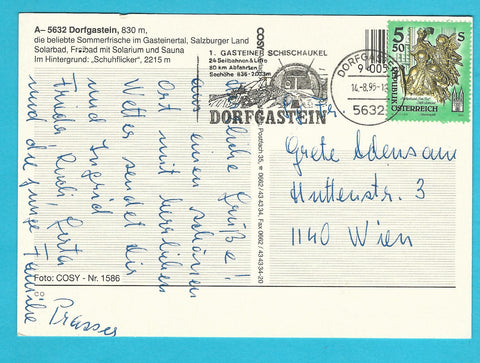 A– 5632 Dorfgastein, 830 m,
die beliebte Sommerfrische im Gasteinertal, Salzburger Land
Solarbad, Freibad mit Solarium und Sauna
Im Hintergrund: „Schuhflicker", 2215 m
1. GASTEINER SCHISCHAUKEL
24 Seilbahnen & Lifte
80 km Abfahrten
Seehöhe 835-2033m
DORFGASTEIN
14.-8.95-1
5632
5 50 S
REPUBLIK ÖSTERREICH
Herzliche Grüße!
aus einem schönen
Ort mit herrlichen
Wetter sendet dir
und Ingrid
Frieda Rudi, Gerta
und die junge Familie
Prasser
Grete
Huttenstr. 3
1140 Wien
Foto: COSY - Nr. 1586
Postfach 35, 0662/43 43 34, Fax 0662/43 43 34-20